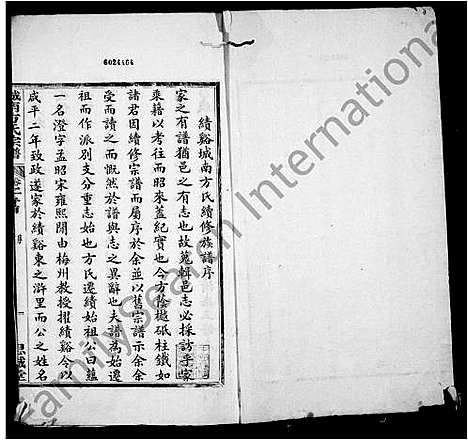 6024464
績谿城南方氏續修族譜序
家之有譜猶邑之有志也故蒐輯邑志必採訪乎家
乘籍以考往而昭來蓋紀實也今方蔭樾砥柱鐵如
諸君因續修宗譜而屬序於余並以舊宗譜示余余
受而讀之而慨然於譜與志之異辭也夫譜為始遷
祖而作派別支分重志始也方氏遷績始祖公曰蘊
一名澄字孟昭宋雍熙間由梅州教授擢績谿令以
咸平二年致政遂家於績谿東之滸里而公之姓名
城南方氏宗譜
卷之首
序
一
思誠堂
FamilySearch International